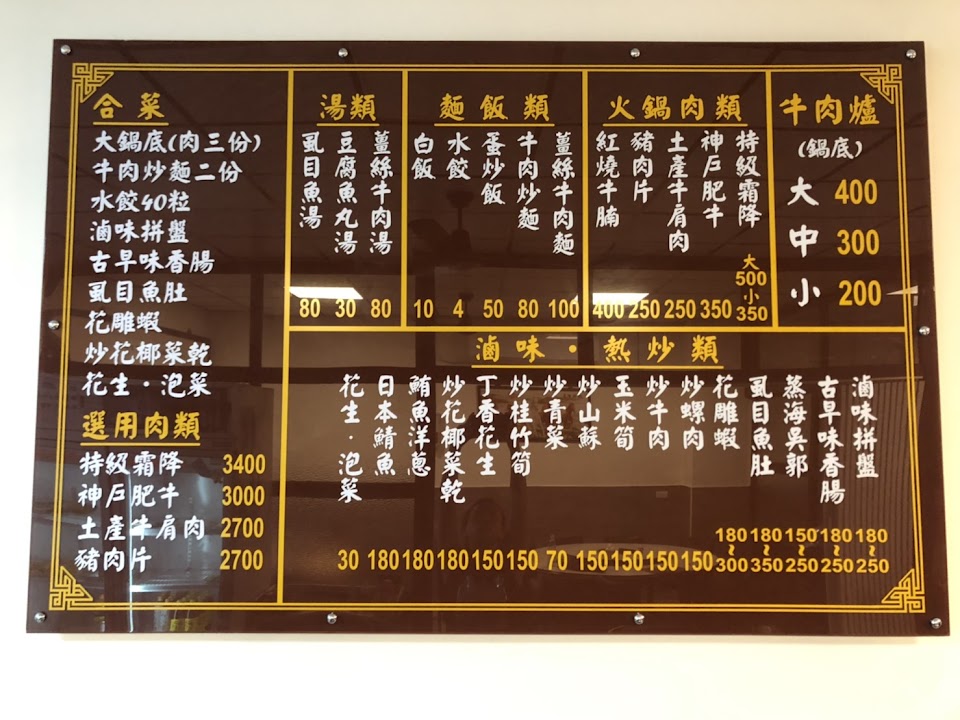 合菜
大鍋底(肉三份)
牛肉炒麵二份
水餃40粒
滷味拼盤
古早味香腸
虱目魚肚
花雕蝦
炒花椰菜乾
花生·泡菜
選用肉類
特級霜降 3400
神戶肥牛 3000
土產牛肩肉 2700
豬肉片 2700
湯類
薑絲牛肉湯 80
豆腐魚丸湯 30
虱目魚湯 80
麵飯類
薑絲牛肉麵 100
牛肉炒麵 80
蛋炒飯 50
水餃 4
白飯 10
火鍋肉類
特級霜降 大500 小350
神戶肥牛 350
土產牛肩肉 250
豬肉片 250
紅燒牛腩 400
牛肉爐
(鍋底)
大 400
中 300
小 200
滷味·熱炒類
滷味拼盤 180~250
古早味香腸 180~250
蒸海吳郭 150~250
虱目魚肚 180~350
花雕蝦 180~300
炒螺肉 150
炒牛肉 150
玉米筍 150
炒山蘇 150
炒青菜 70
炒桂竹筍 150
丁香花生 150
炒花椰菜乾 180
鮪魚洋蔥 180
日本鯖魚 180
花生·泡菜 30